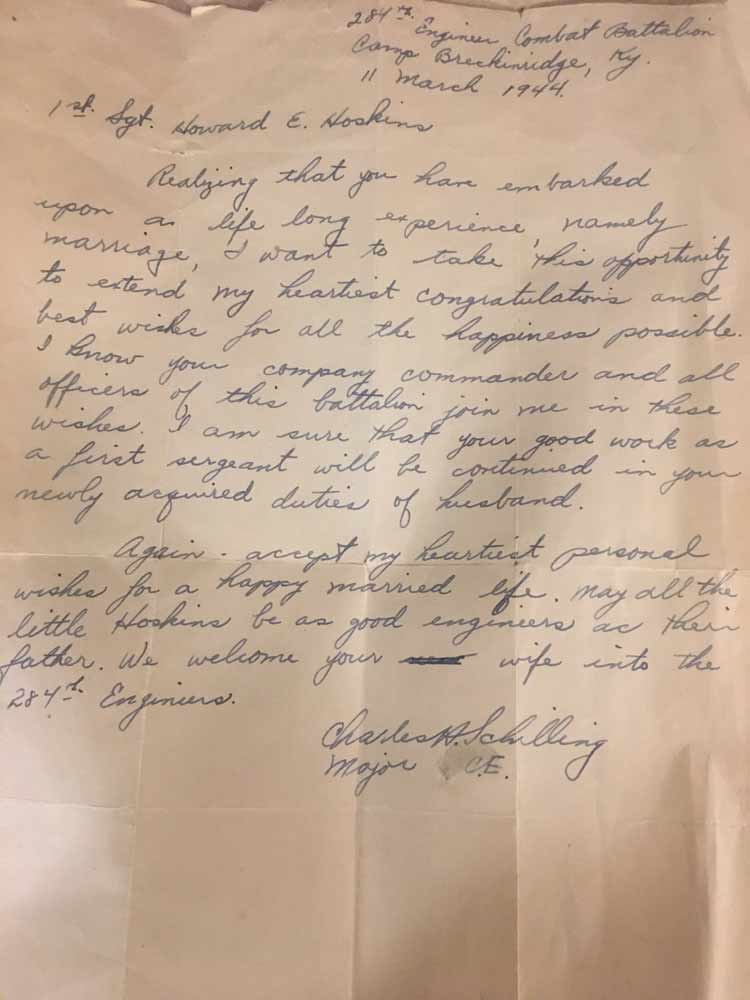 284th. Engineer Combat Battalion
Camp Breckinridge, Ky.
11 March 1944.
1st. Sgt. Howard E. Hoskins
Realizing that you have embarked
upon a life long experience, namely
marriage, I want to take this opportunity
to extend my heartiest congratulations and
best wishes for all the happiness possible.
I know your company commander and all
officers of this battalion join me in these
wishes. I am sure that your good work as
a first sergeant will be continued in your
newly acquired duties of husband.
Again - accept my heartiest personal
wishes for a happy married life. May all the
little Hoskins be as good engineers as their
father. We welcome your wife into the
284th. Engineers.
Charles H. Schilling
Major C.E.